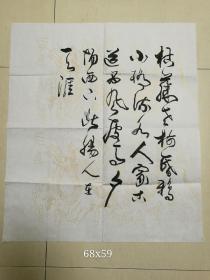 枯藤老树昏鸦
小桥流水人家古
道西风瘦马夕
阳西下断肠人在
天涯
68x59